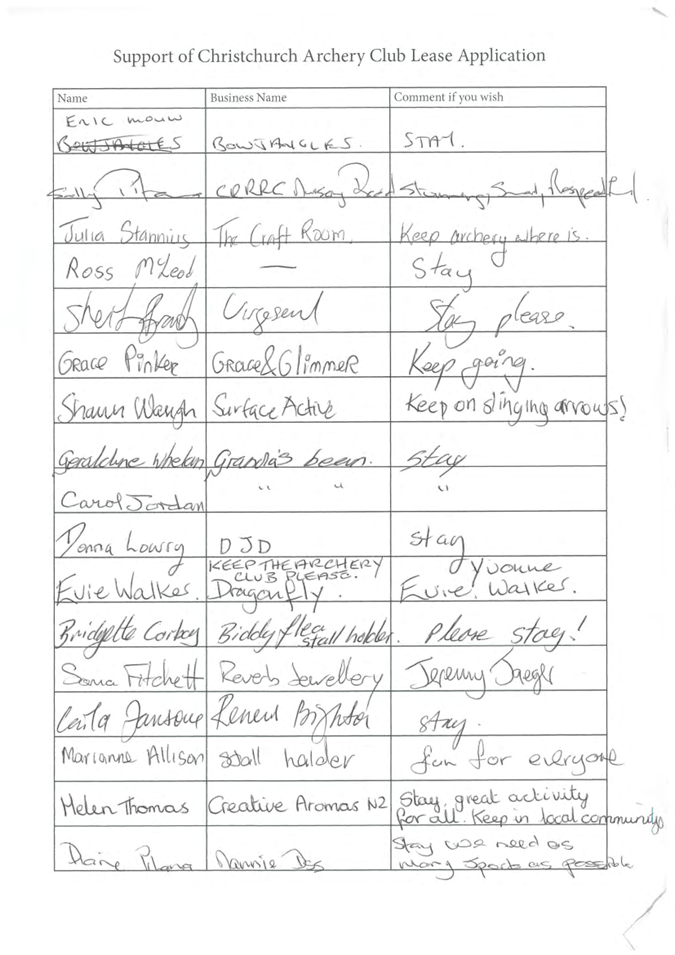 Support of Christchurch Archery Club Lease Application
Name Business Name Comment if you wish
Eric mouw
BOWJANGLES BOWJANGLES. STAY.
Sally CRRRC Road
Julia Stannius The Craft Room. Keep archery where is.
Ross McLeod — Stay
Stay please.
Grace Pinker Grace&Glimmer Keep going.
Shaun Waugh Surface Active Keep on slinging arrows!
Geraldine Whelan Granda's bean. stay
Carol Jordan " " "
Donna Lowry DJD stay
KEEP THE ARCHERY
CLUB PLEASE. Yvonne
Evie Walkes. Dragonfly. Evie. Walkes.
Bridgette Corboy Biddy flea stall holder. Please stay!
Fitchett Reverb Jewellery Jeremy Jaeger
Renew Brighton stay.
Marianne Allison stall holder fun for everyone
Helen Thomas Creative Aromas NZ Stay, great activity
for all. Keep in local community
Stay we need as
Nannie many sports as possible